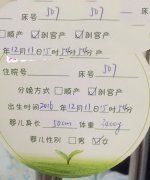 床号 507 507
□顺产 ☑剖宫产 □顺产 ☑剖宫产
年12月11日15时54分 12月11日15时54分
住院号 床号 507
分娩方式 □顺产 ☑剖宫产
出生时间2016年12月11日15时54分
婴儿身长 50cm 体重
婴儿性别 □男 ☑女